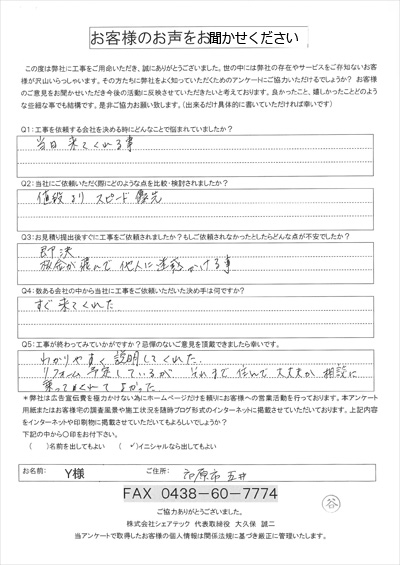 お客様のお声をお聞かせください
この度は弊社に工事をご用命いただき、誠にありがとうございました。世の中には弊社の存在やサービスをご存知ないお客
様が沢山いらっしゃいます。その方たちに弊社をよく知っていただくためのアンケートにご協力いただけるでしょうか? お客様
のご意見をお聞かせいただき今後の活動に反映させていただきたいと考えております。良かったこと、嬉しかったことどのよう
な些細な事でも結構です。是非ご協力お願い致します。(出来るだけ具体的に書いていただければ幸いです)
Q1:工事を依頼する会社を決める時にどんなことで悩まれていましたか?
当日来てくれる事
Q2:当社にご依頼いただく際にどのような点を比較・検討されましたか?
値段より スピード優先
Q3:お見積り提出後すぐに工事をご依頼されましたか?もしご依頼されなかったとしたらどんな点が不安でしたか?
即決
他人に迷惑かける事
Q4:数ある会社の中から当社にご依頼いただいた決め手は何ですか?
すぐ来てくれた
Q5:工事が終わってみていかがですか?忌憚のないご意見を頂戴できましたら幸いです。
わかりやすく説明してくれた
リフォーム予定しているが それまで住んで大丈夫か相談に
乗ってくれて よかった
*弊社は広告宣伝費を極力かけない為にホームページだけを頼りにお客様への営業活動を行っております。本アンケート
用紙またはお客様宅の調査風景や施工状況を随時ブログ形式のインターネットに掲載させていただいております。上記内容
をインターネットや印刷物に掲載させていただいてもよろしいでしょうか?
下記の中から〇印をお付け下さい。
( )名前を出してもよい (✓)イニシャルなら出してもよい
お名前: Y様 ご住所: 市原市 五井
FAX 0438-60-7774
谷
ご協力ありがとうございました。
株式会社シェアテック 代表取締役 大久保 誠二
当アンケートで取得したお客様の個人情報は関係法規に基づき厳正に管理いたします。